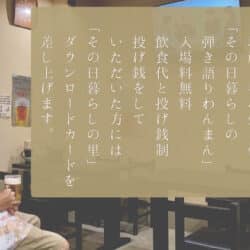 「その日暮らしの
弾き語りわんまん」
入場料無料
飲食代と投げ銭制
投げ銭をして
いただいた方には
「その日暮らしの里」
ダウンロードカードを
差し上げます。